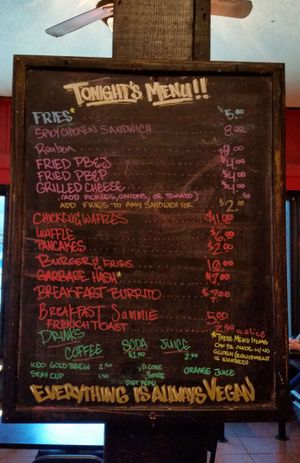 TONIGHT'S MENU!!
FRIES* $5.00
SPICY CHICKEN SANDWICH 8.00
Reuben
FRIED PB&J $4
FRIED PB&P $4
GRILLED CHEESE $4
(ADD PICKLES, ONIONS, OR TOMATO) .50
ADD FRIES TO ANY SANDWICH FOR $2.00
CHICKEN & WAFFLES $11.00
WAFFLE $6.00
PANCAKES $2.00
BURGER & FRIES 10.00
GARBAGE HASH* $7.00
BREAKFAST BURRITO $7.00
BREAKFAST Sammie 5.00
FRENCH TOAST 2.50 a slice
DRINKS
COFFEE SODA JUICE
$1.00 2.00
ICED COLD BREW 2.50
ORANGE JUICE
SPRITE
DIET PEPSI
*THESE MENU ITEMS
CAN BE MADE W/ NO
GLUTEN (EQUIPMENT
IS SHARED)
EVERYTHING IS ALWAYS VEGAN